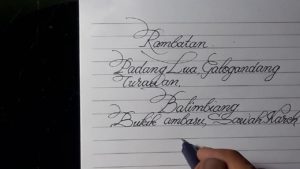 Rambatan
Padang Lua, Galogandang
Turawan,
Balimbiang
Bukik ambasu, Sawah Kareh